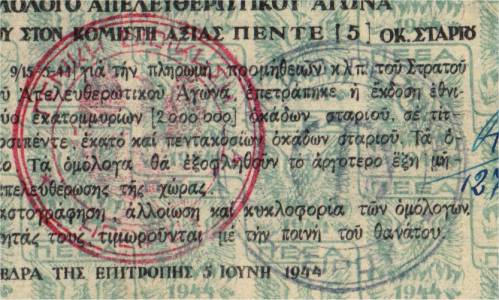 ΜΟΛΟΓΟ ΑΠΕΛΕΥΘΕΡΩΤΙΚΟΥ ΑΓΩΝΑ
Υ ΣΤΟΝ ΚΟΜΙΣΤΗ ΑΞΙΑΣ ΠΕΝΤΕ [5] ΟΚ. ΣΤΑΡΙΟΥ
9/15-5-44) γιὰ τὴν πληρωμὴ προμηθειῶν κ.λ.π. τοῦ Στρατοῦ
οῦ Ἀπελευθερωτικοῦ Ἀγώνα, ἐπετράπηκε ἡ ἔκδοση ἐθνι-
ύο ἑκατομμυρίων [2.000.000] ὀκάδων σταριοῦ, σὲ τίτ-
οσιπέντε, ἑκατὸ καὶ πεντακοσίων ὀκάδων σταριοῦ. Τὰ ὁ-
κο. Τὰ ὁμόλογα θὰ ἐξοφληθοῦν τὸ ἀργότερο ἕξη μῆ-
πελευθέρωσης τῆς χώρας.
αστογραφηση, ἀλλοίωση καὶ κυκλοφορία τῶν ὁμολόγων,
ητάς τους, τιμωροῦνται μὲ τὴν ποινὴ τοῦ θανάτου.
ΕΔΡΑ ΤΗΣ ΕΠΙΤΡΟΠΗΣ 5 ΙΟΥΝΗ 1944
ΠΕΕΑ
1944